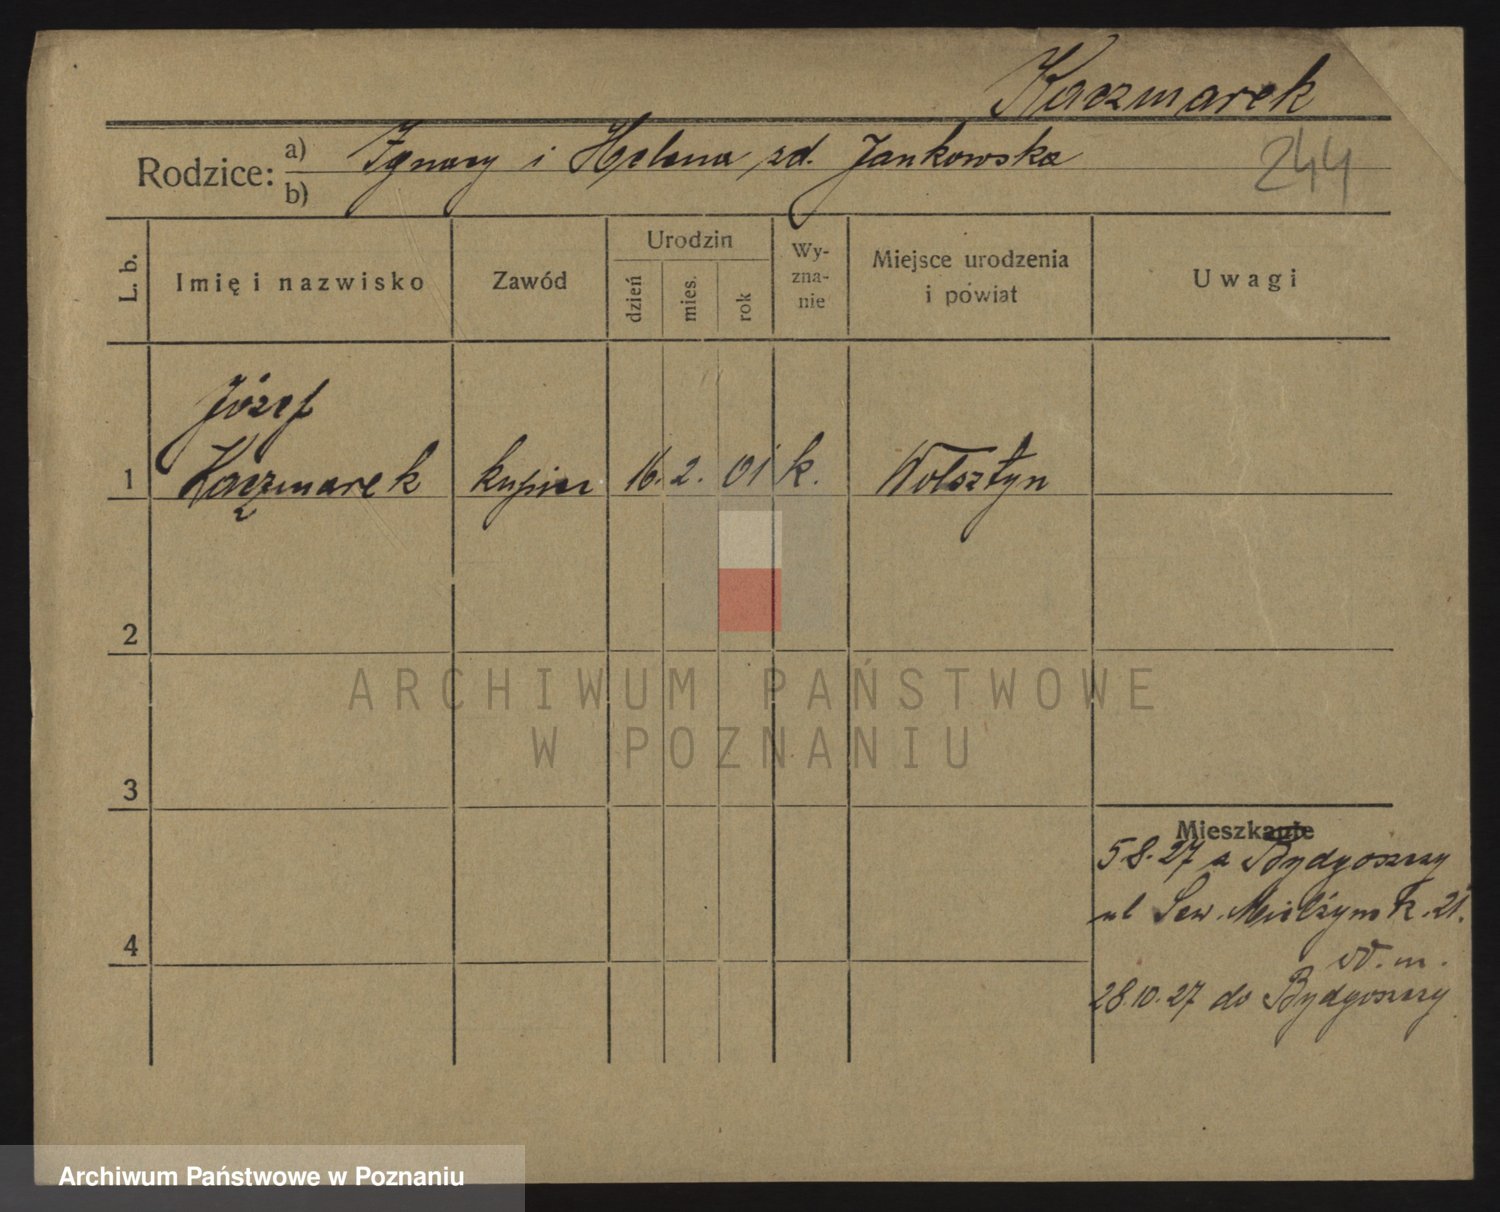 Kaczmarek
244
Rodzice: a) Ignacy i Helena zd. Jankowska
b)
L. b.
Imię i nazwisko
Zawód
Urodzin
dzień
mies.
rok
Wy-
zna-
nie
Miejsce urodzenia
i powiat
Uwagi
Józef
1 Kaczmarek kupiec 16. 2. 01 k. Wolsztyn
2
3
4
Mieszkanie
5.8.27 z Bydgoszczy
ul Sew. Mielżyńsk. 21.
28.10.27 do Bydgoszczy
ARCHIWUM PAŃSTWOWE
W POZNANIU
Archiwum Państwowe w Poznaniu